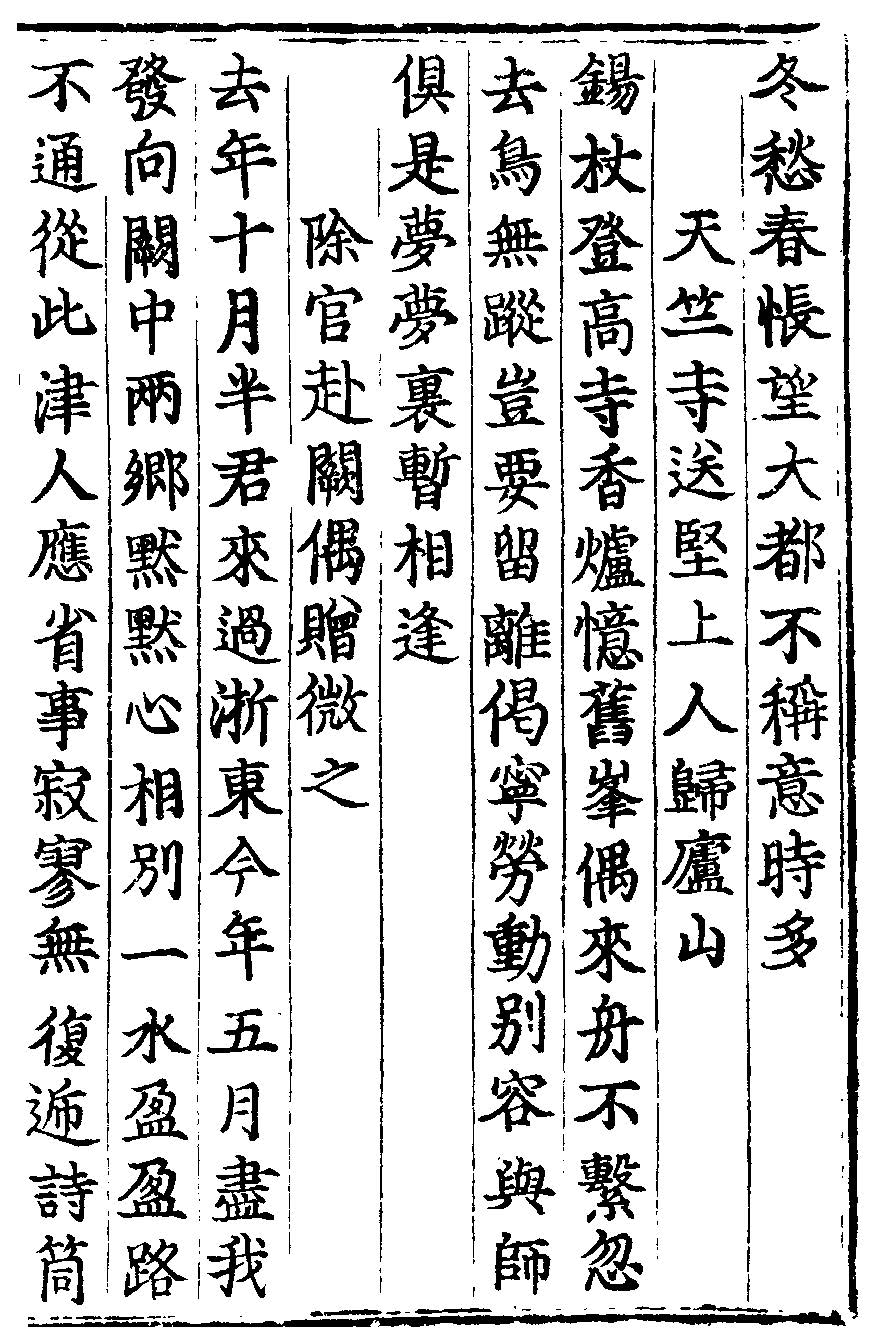 冬愁春悵望大都不稱意時多
天竺寺送堅上人歸廬山
錫杖登高寺香爐憶舊峯偶來舟不繫忽
去鳥無蹤豈要留離偈寧勞動别容與師
俱是夢夢裏暫相逢
除官赴闕偶贈微之
去年十月半君來過浙東今年五月盡我
發向闕中兩鄉默默心相別一水盈盈路
不通從此津人應省事寂寥無復遞詩筒